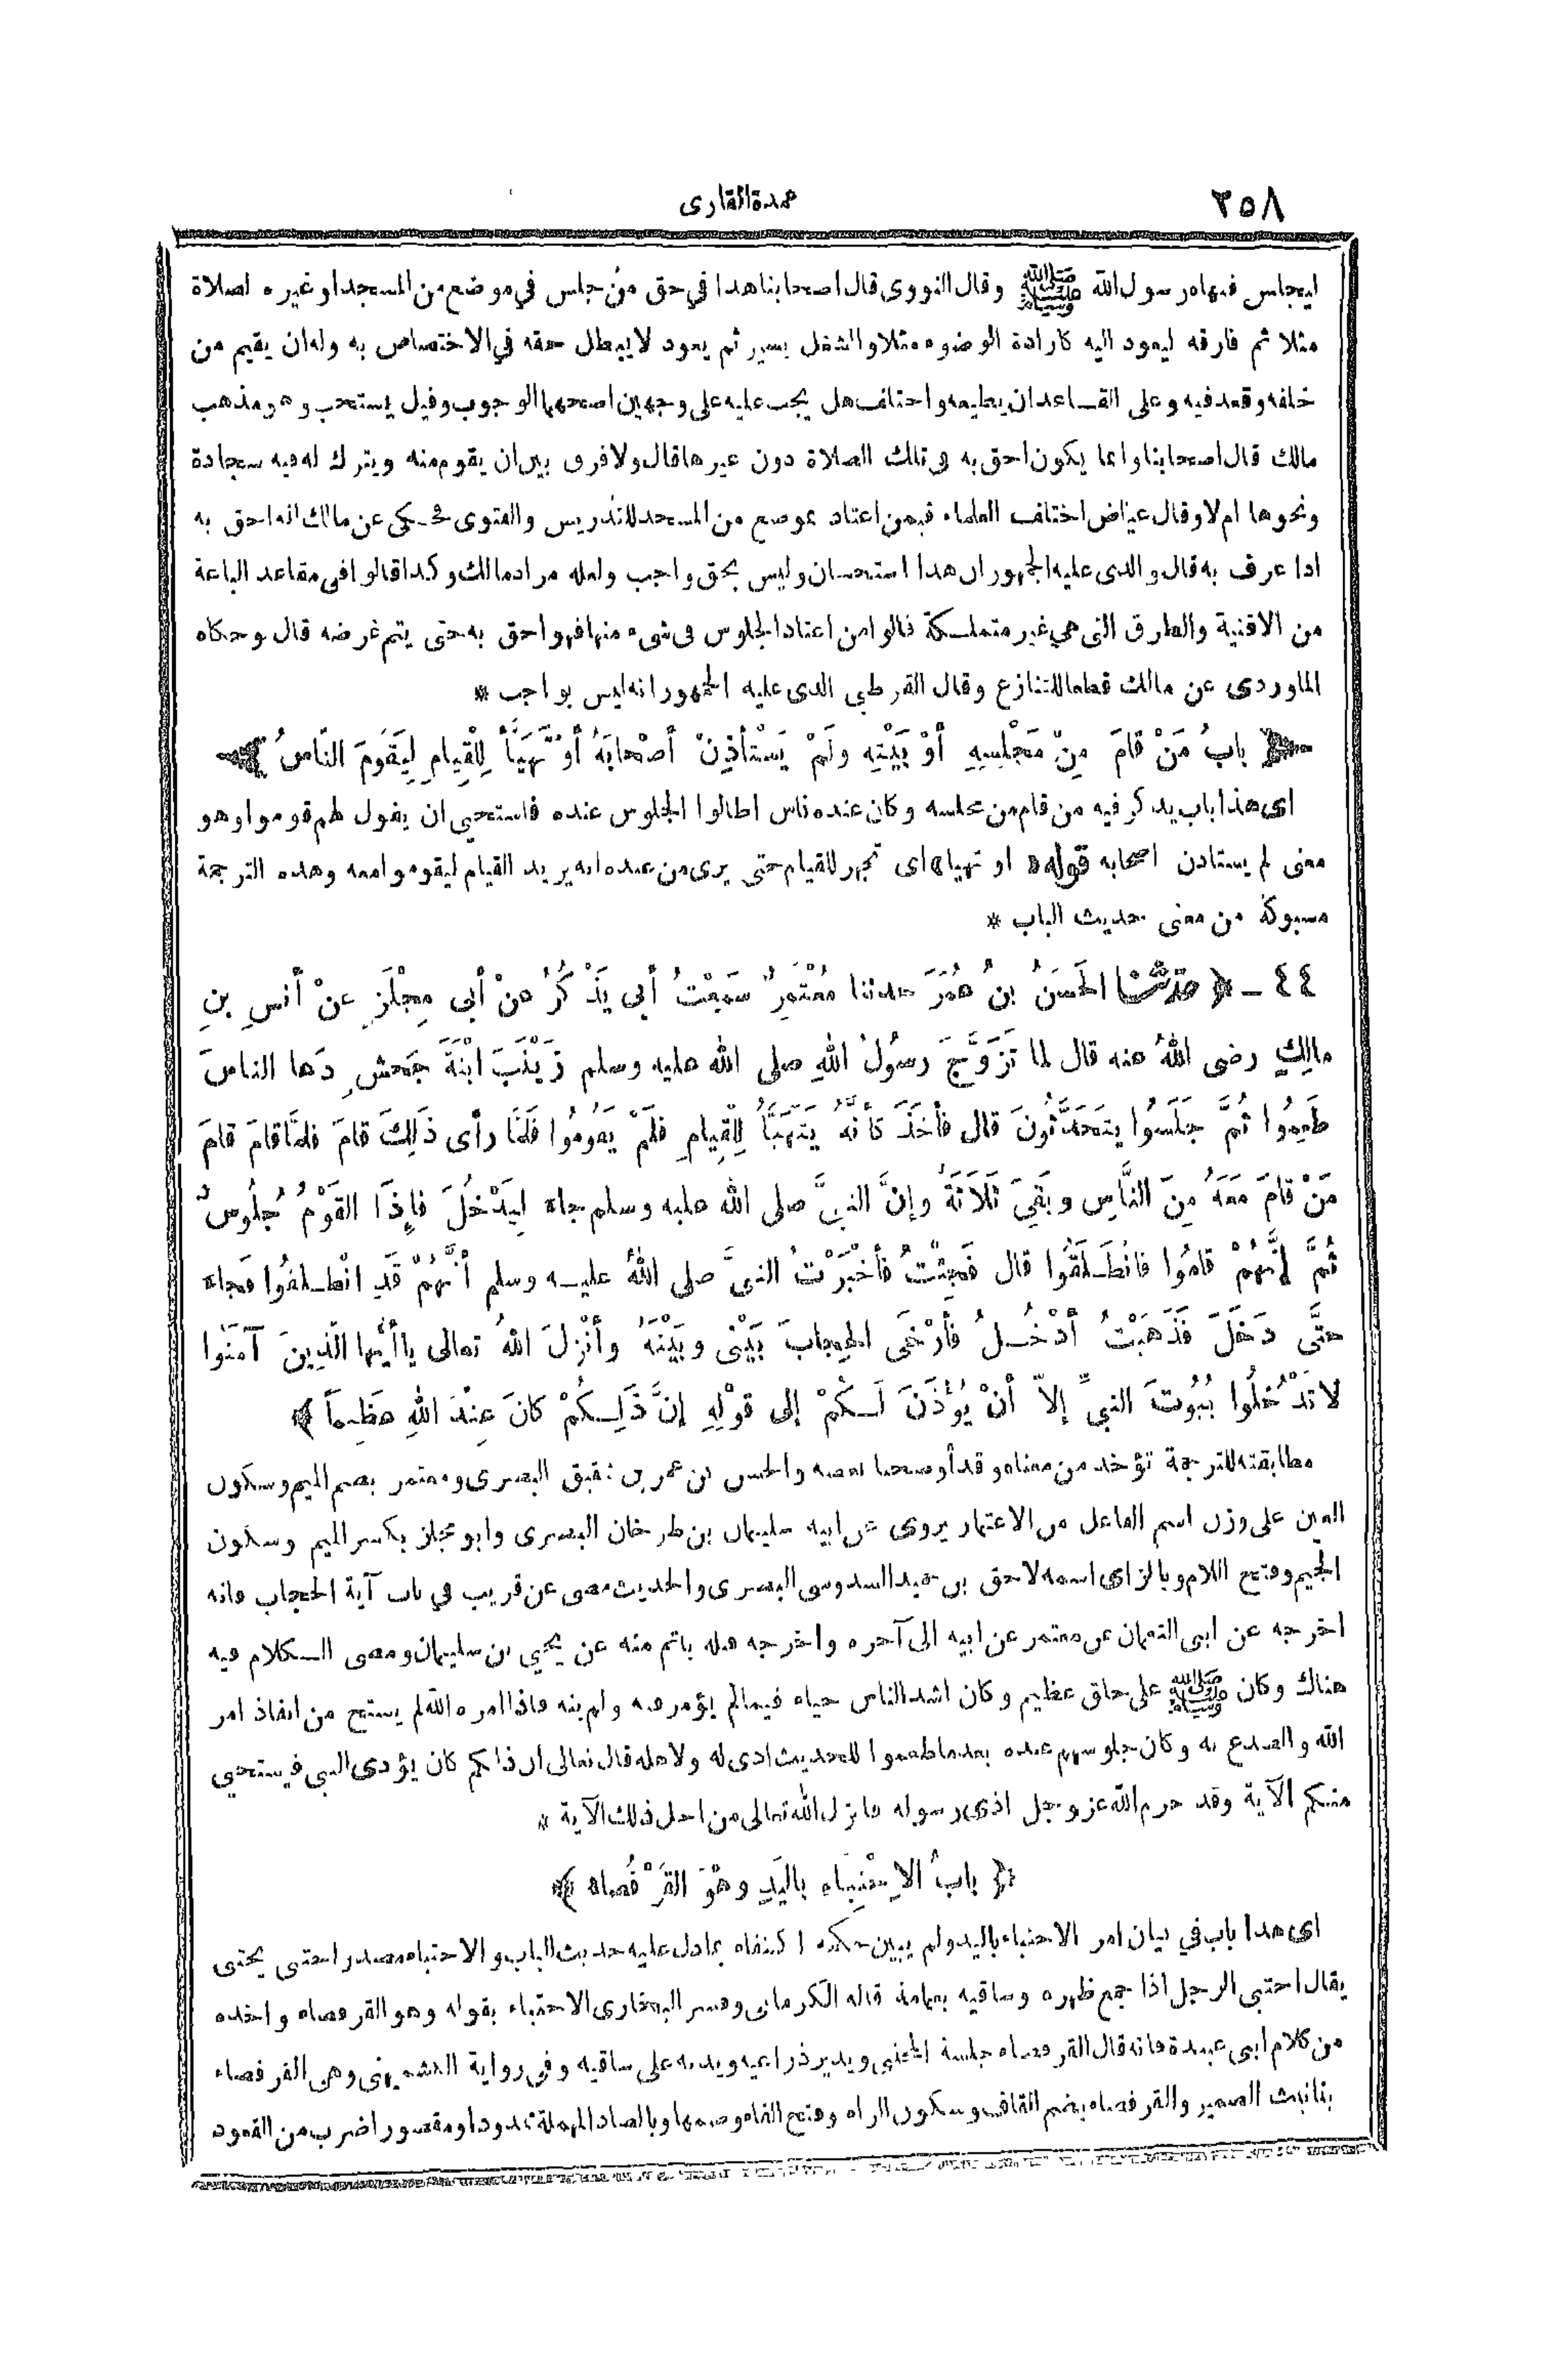 ٢٥٨ عمدة القارى
ليجلس فيها هو رسول الله ﷺ وقال النووى قال اصحابنا هذا في حق من جلس في موضع من المسجد او غيره لصلاة
مثلا ثم فارقه ليعود اليه كارادة الوضوء مثلا والشغل يسير ثم يعود لا يبطل حقه في الاختصاص به وله ان يقيم من
خلفه وقعد فيه وعلى القاعد ان يطيعه واختلف هل يجب عليه على وجهين اصحهما الوجوب وقيل يستحب وهو مذهب
مالك قال اصحابنا وانما يكون احق به في تلك الصلاة دون غيرها قال ولا فرق بين ان يقوم منه ويترك له فيه سجادة
ونحوها ام لا وقال عياض اختلف العلماء فيمن اعتاد بموضع من المسجد للتدريس والفتوى فحكى عن مالك انه احق به
اذا عرف به قال والذى عليه الجمهور ان هذا استحسان وليس بحق واجب ولعله مراد مالك وكذا قالوا في مقاعد الباعة
من الافنية والطرق التى هي غير متملكة قالوا من اعتاد الجلوس فى شىء منها فهو احق به حتى يتم غرضه قال وحكاه
الماوردى عن مالك قطعا للتنازع وقال القرطبي الذى عليه الجمهور انه ليس بواجب *
﴿ بابُ مَنْ قامَ مِنْ مَجْلِسِهِ أوْ بَيْتِهِ ولَمْ يَسْتأذِنْ أصْحابَهُ أوْ تَهَيَّأَ لِلْقِيامِ لِيَقُومَ النَّاسُ ﴾
اى هذا باب يذكر فيه من قام من مجلسه وكان عنده ناس اطالوا الجلوس عنده فاستحيى ان يقول لهم قوموا وهو
معنى لم يستاذن اصحابه قوله «او تهيا» اى تجهز للقيام حتى يرى من عنده انه يريد القيام ليقوموا معه وهذه الترجمة
مسبوكة من معنى حديث الباب *
٤٤ - ﴿ حدّثنا الحَسَنُ بنُ عُمَرَ حدثنا مُعْتَمِرٌ سَمِعْتُ أبى يَذْكُرُ عنْ أبى مِجْلَزٍ عنْ أنسِ بنِ
مالِكٍ رضى اللهُ عنه قال لما تَزَوَّجَ رسُولُ اللهِ صلى الله عليه وسلم زَيْنَبَ ابْنَةَ جَحْشٍ دَعا الناسَ
طَعِمُوا ثُمَّ جَلَسُوا يتَحَدَّثُونَ قال فأخَذَ كأنَّهُ يَتَهَيَّأُ لِلْقِيامِ فلَمْ يَقُومُوا فَلَمَّا رأى ذَلِكَ قامَ فلمَّا قامَ قامَ
مَنْ قامَ مَعَهُ مِنَ النَّاسِ وبَقِيَ ثَلَاثَةٌ وإنَّ النبيَّ صلى الله عليه وسلم جاءَ لِيَدْخُلَ فإذَا القَوْمُ جُلُوسٌ
ثُمَّ إنَّهُمْ قامُوا فانْطَلَقُوا قال فَجِئْتُ فأخْبَرْتُ النبيَّ صلى اللهُ عليه وسلم أنَّهُمْ قَدِ انْطَلَقُوا فَجاءَ
حتَّى دَخَلَ فَذَهَبْتُ أدْخُلُ فأرْخَى الحِجابَ بَيْنِى وبَيْنَهُ وأنْزلَ اللهُ تعالى ياأيُّها الَّذِينَ آمَنُوا
لا تَدْخُلُوا بُيُوتَ النبيِّ إلاّ أنْ يُؤْذَنَ لَكُمْ إلى قوْلِهِ إنَّ ذَلِكُمْ كانَ عِنْدَ اللهِ عَظِيماً ﴾
مطابقته للترجمة تؤخذ من معناه وقد أوضحنا بعضه والحسن بن عمر بن شقيق البصرى ومعتمر بضم الميم وسكون
العين على وزن اسم الفاعل من الاعتمار يروى عن ابيه سليمان بن طرخان البصرى وابو مجلز بكسر الميم وسكون
الجيم وفتح اللام وبالزاى اسمه لاحق بن حميد السدوسى البصرى والحديث مضى عن قريب في باب آية الحجاب فانه
اخرجه عن ابى النعمان عن معتمر عن ابيه الى آخره واخرجه قبله باتم منه عن يحيى بن سليمان ومضى الكلام فيه
هناك وكان ﷺ على خلق عظيم وكان اشد الناس حياء فيما لم يؤمر فيه ولم ينه فاذا امره الله لم يستح من انفاذ امر
الله والصدع به وكان جلوسهم عنده بعد ما طعموا للحديث اذى له ولاهله قال تعالى ان ذلكم كان يؤذى النبى فيستحيى
منكم الآية وقد حرم الله عز وجل اذى رسوله فانزل الله تعالى من اجل ذلك الآية *
﴿ بابُ الاحْتِباءِ باليَدِ وهْوَ القُرْفُصاءُ ﴾
اى هذا باب في بيان امر الاحتباء باليد ولم يبين حكمه اكتفاء بما دل عليه حديث الباب والاحتباء مصدر احتبى يحتبى
يقال احتبى الرجل اذا جمع ظهره وساقيه بعمامة قاله الكرمانى وفسر البخارى الاحتباء بقوله وهو القرفصاء واخذه
من كلام ابى عبيدة فانه قال القرفصاء جلسة المحتبى ويدير ذراعيه ويديه على ساقيه وفي رواية الكشميهنى وهى القرفصاء
بتانيث الضمير والقرفصاء بضم القاف وسكون الراء وفتح الفاء وضمها وبالصاد المهملة ممدودا ومقصورا ضرب من القعود